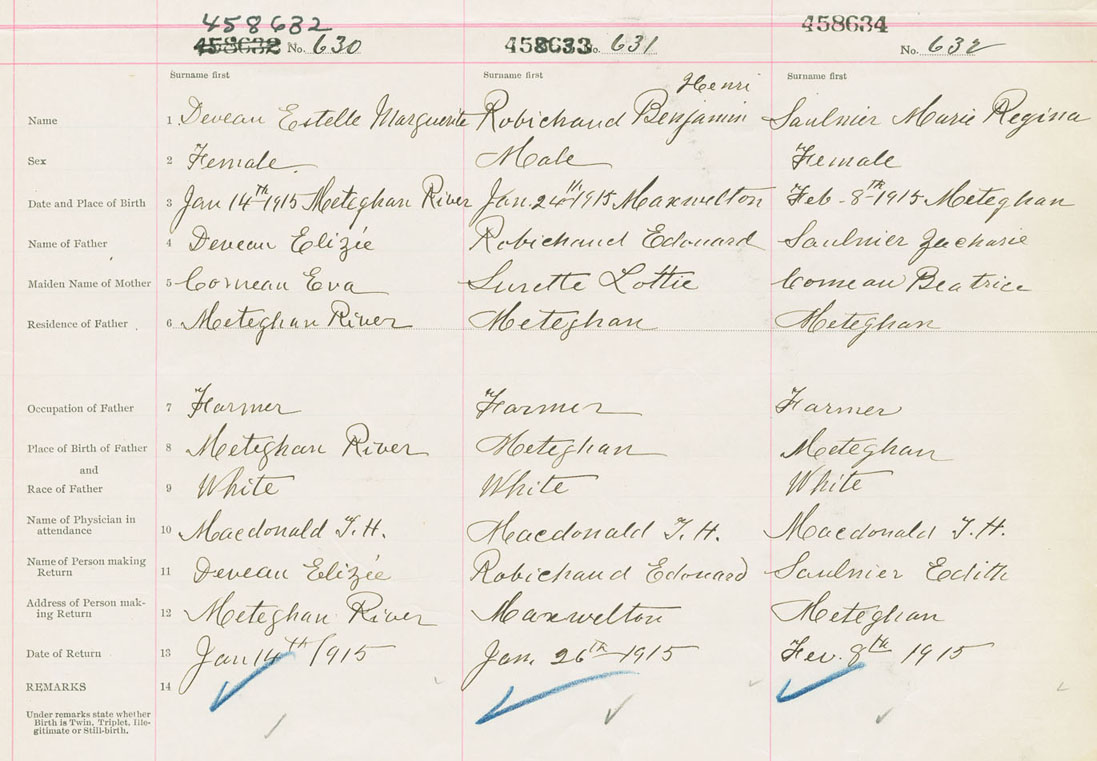 458632 458634
458632 No. 630 458633 No. 631 No. 632
Surname first Surname first Surname first
Henri
Name 1 Deveau Estelle Marguerite Robichaud Benjamin Saulnier Marie Regina
Sex 2 Female Male Female
Date and Place of Birth 3 Jan 14th 1915 Meteghan River Jan. 24th 1915 Maxwelton Feb - 8th 1915 Meteghan
Name of Father 4 Deveau Elizée Robichaud Edouard Saulnier Zacharie
Maiden Name of Mother 5 Comeau Eva Surette Lottie Comeau Beatrice
Residence of Father 6 Meteghan River Meteghan Meteghan
Occupation of Father 7 Farmer Farmer Farmer
Place of Birth of Father 8 Meteghan River Meteghan Meteghan
and
Race of Father 9 White White White
Name of Physician in
attendance 10 Macdonald T. H. Macdonald T. H. Macdonald T. H.
Name of Person making
Return 11 Deveau Elizée Robichaud Edouard Saulnier Edith
Address of Person mak-
ing Return 12 Meteghan River Maxwelton Meteghan
Date of Return 13 Jan 14th / 1915 Jan. 26th 1915 Fev. 8th 1915
REMARKS 14
Under remarks state whether
Birth is Twin, Triplet, Ille-
gitimate or Still-birth.